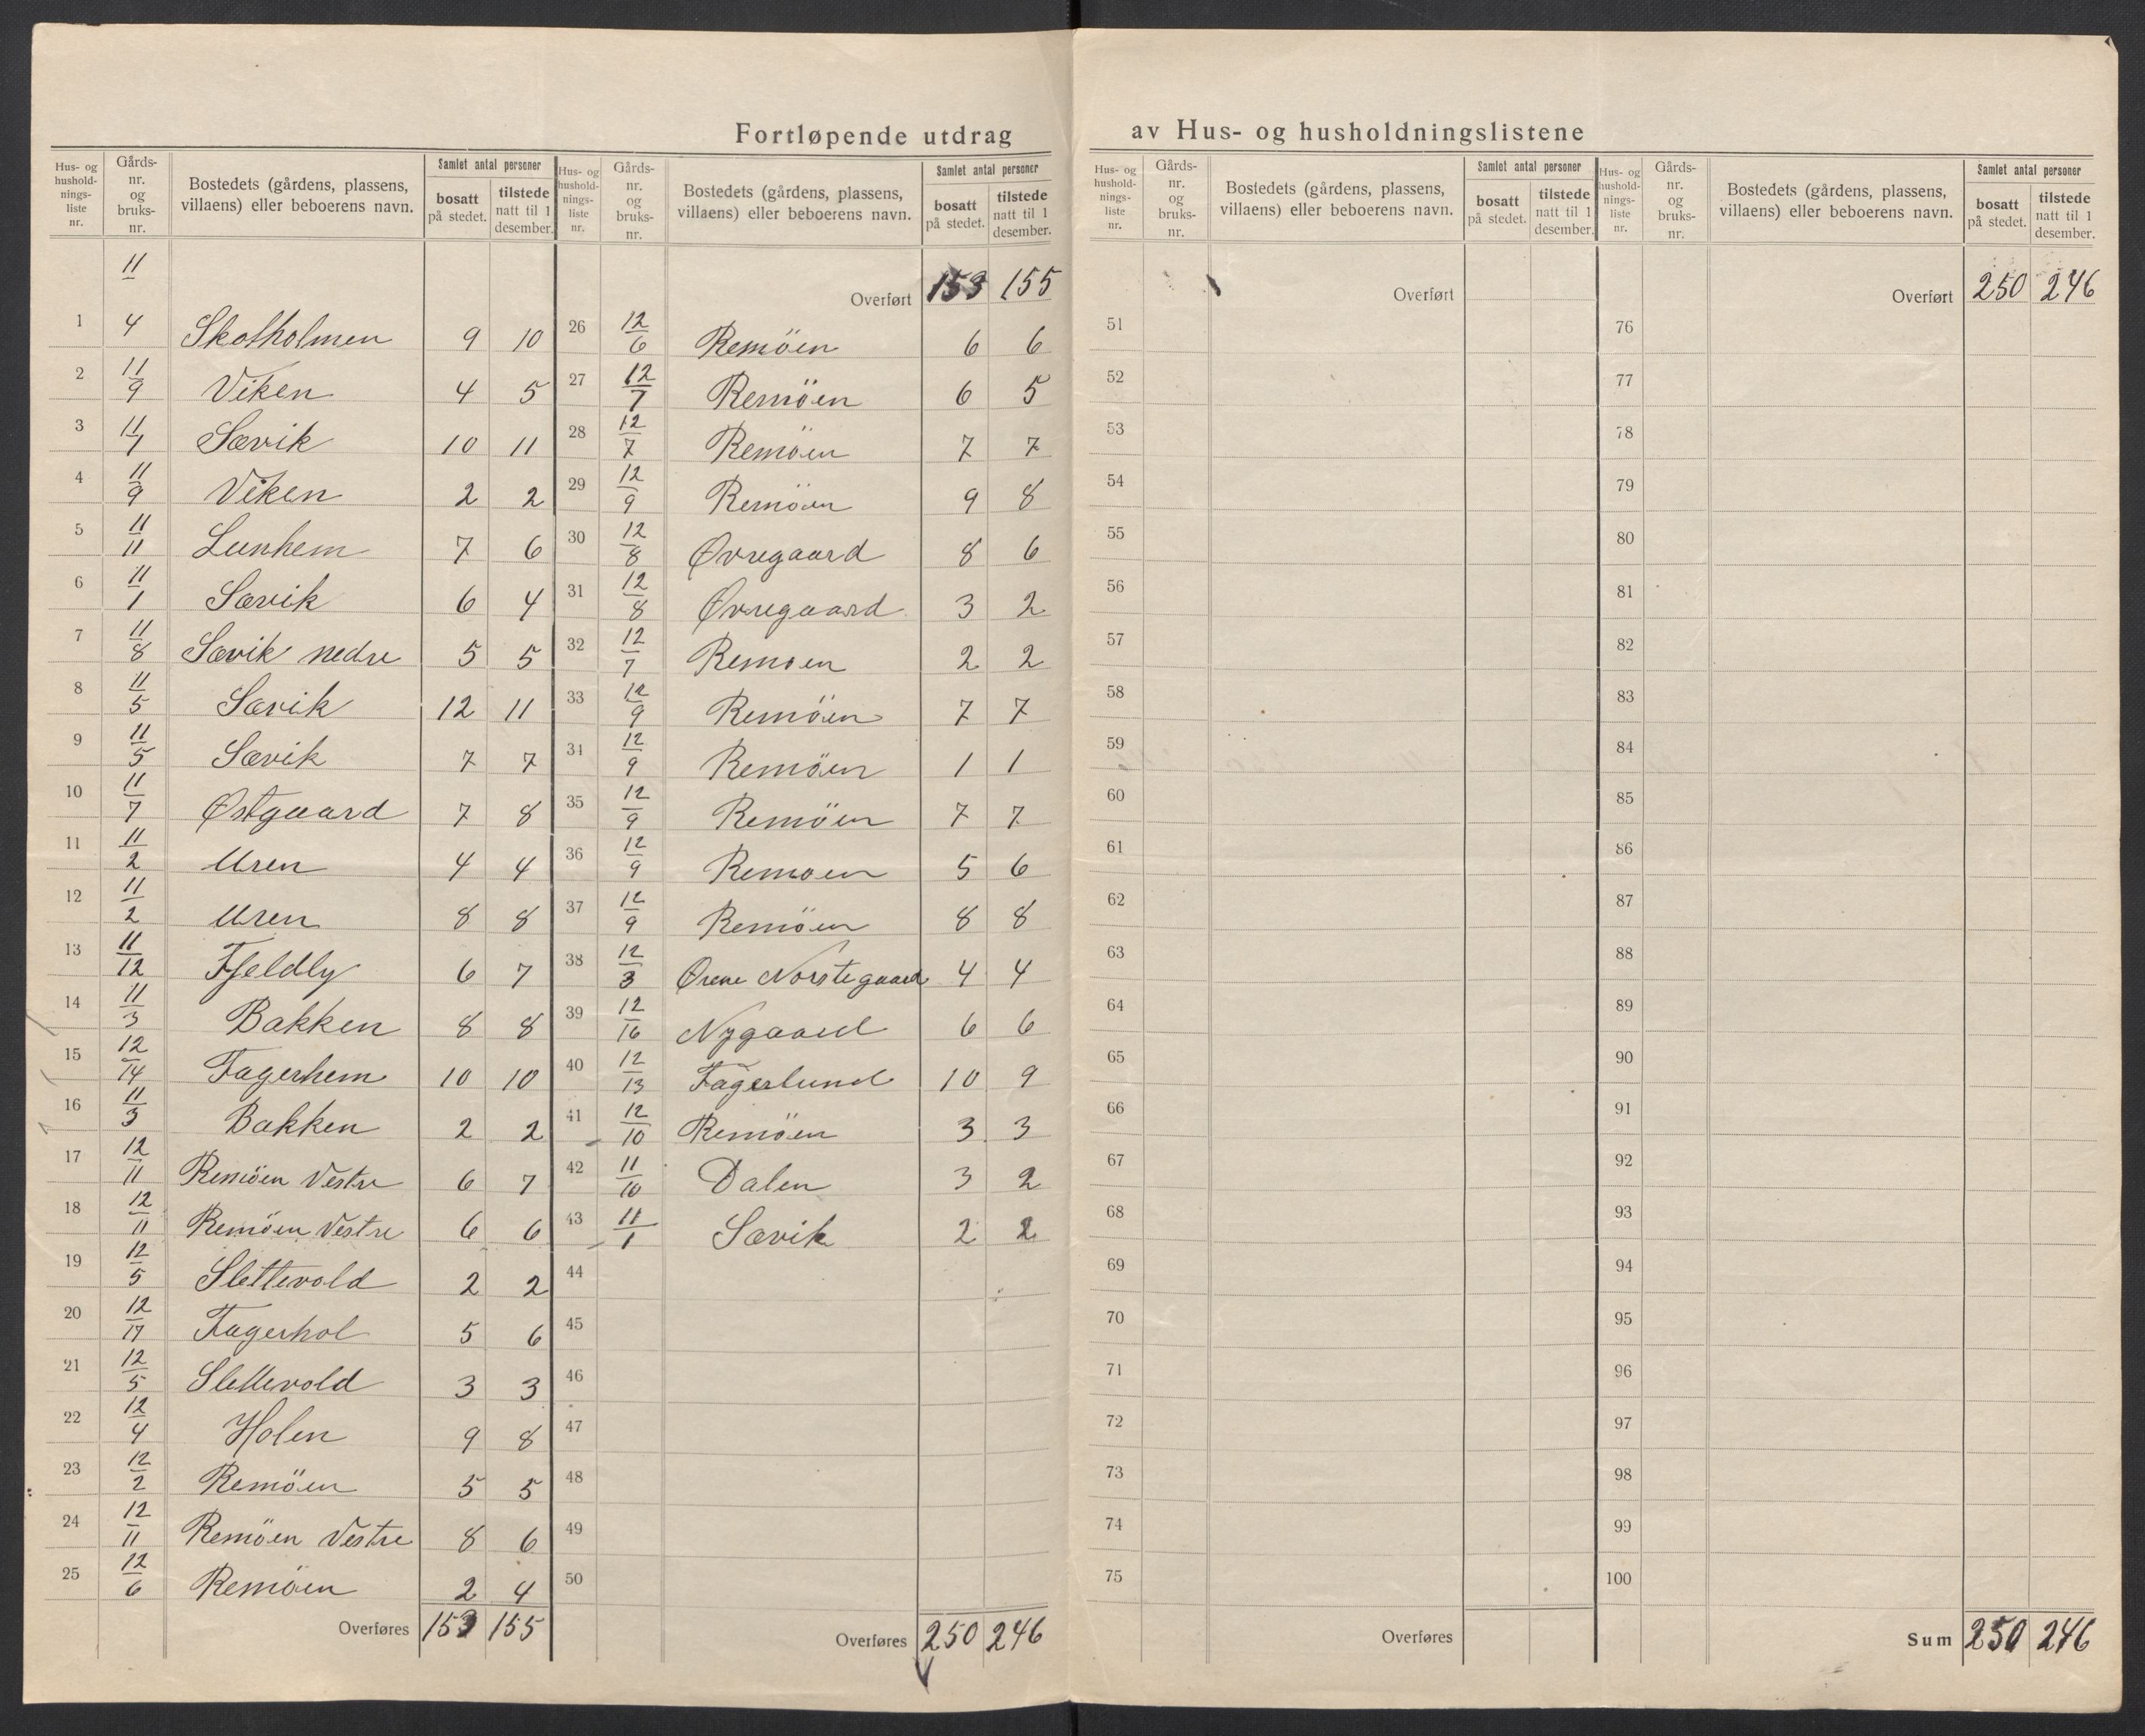 Fortløpende utdrag av Hus- og husholdningslistene
Hus- og husholdnings- liste nr. | Gårds- nr. og bruks- nr. | Bostedets (gårdens, plassens, villaens) eller beboerens navn. | Samlet antal personer | bosatt på stedet. | tilstede natt til 1 desember.
1 11/4 Skotholmen 9 10
2 11/9 Viken 4 5
3 11/1 Sævik 10 11
4 11/9 Viken 2 2
5 11/11 Lunhem 7 6
6 11/1 Sævik 6 4
7 11/8 Sævik nedre 5 5
8 11/5 Sævik 12 11
9 11/5 Sævik 7 7
10 11/7 Østgaard 7 8
11 11/2 Uren 4 4
12 11/2 Uren 8 8
13 11/12 Fjeldly 6 7
14 11/3 Bakken 8 8
15 12/14 Fagerhem 10 10
16 11/3 Bakken 2 2
17 12/11 Remöen Vestre 6 7
18 12/11 Remöen Vestre 6 6
19 12/5 Slettevold 2 2
20 12/17 Fagerhol 5 6
21 12/5 Slettevold 3 3
22 12/4 Holen 9 8
23 12/2 Remöen 5 5
24 12/11 Remöen Vestre 8 6
25 12/6 Remöen 2 4
Overføres 153 155
Hus- og husholdnings- liste nr. | Gårds- nr. og bruks- nr. | Bostedets (gårdens, plassens, villaens) eller beboerens navn. | Samlet antal personer | bosatt på stedet. | tilstede natt til 1 desember.
Overført 153 155
26 12/6 Remöen 6 6
27 12/7 Remöen 6 5
28 12/7 Remöen 7 7
29 12/9 Remöen 9 8
30 12/8 Øvregaard 8 6
31 12/8 Øvregaard 3 2
32 12/7 Remoen 2 2
33 12/9 Remöen 7 7
34 12/9 Remöen 1 1
35 12/9 Remöen 7 7
36 12/9 Remoen 5 6
37 12/9 Remöen 8 8
38 12/3 Norstegaard 4 4
39 12/16 Nygaard 6 6
40 12/13 Fagerlund 10 9
41 12/10 Remöen 3 3
42 11/10 Dalen 3 2
43 11/1 Sævik 2 2
44
45
46
47
48
49
50
Overføres 250 246
Hus- og husholdnings- liste nr. | Gårds- nr. og bruks- nr. | Bostedets (gårdens, plassens, villaens) eller beboerens navn. | Samlet antal personer | bosatt på stedet. | tilstede natt til 1 desember.
Overført
51
52
53
54
55
56
57
58
59
60
61
62
63
64
65
66
67
68
69
70
71
72
73
74
75
Overføres
Hus- og husholdnings- liste nr. | Gårds- nr. og bruks- nr. | Bostedets (gårdens, plassens, villaens) eller beboerens navn. | Samlet antal personer | bosatt på stedet. | tilstede natt til 1 desember.
Overført 250 246
76
77
78
79
80
81
82
83
84
85
86
87
88
89
90
91
92
93
94
95
96
97
98
99
100
Sum 250 246